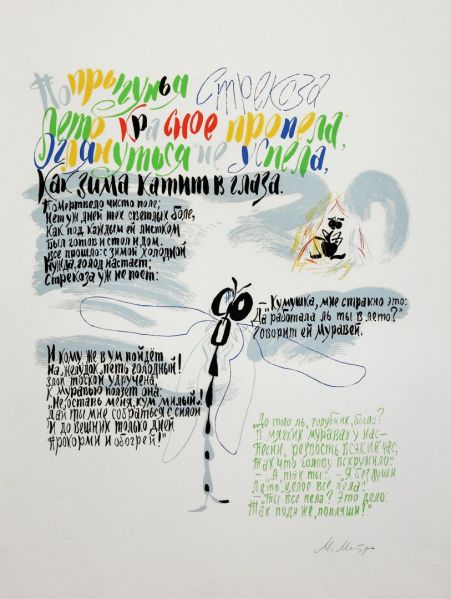 Попрыгунья Стрекоза
Лето красное пропела;
Оглянуться не успела,
Как зима катит в глаза.
Помертвело чисто поле;
Нет уж дней тех светлых боле,
Как под каждым ей листком
Был готов и стол и дом.
Все прошло: с зимой холодной
Нужда, голод настает;
Стрекоза уж не поет:
И кому же в ум пойдет
На желудок петь голодный!
Злой тоской удручена,
К Муравью ползет она:
„Не оставь меня, кум милый!
Дай ты мне собраться с силой
И до вешних только дней
Прокорми и обогрей!"
— „Кумушка, мне странно это:
Да работала ль ты в лето?"
Говорит ей Муравей.
„До того ль, голубчик, было?
В мягких муравах у нас —
Песни, резвость всякий час,
Так что голову вскружило".
— „А, так ты..." — „Я без души
Лето целое все пела".
— „Ты все пела? Это дело:
Так поди же, попляши!"